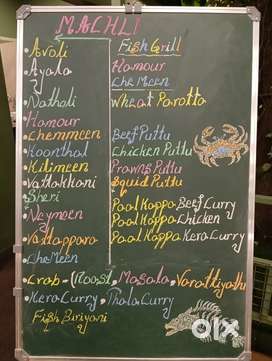 MACHLI
Avoli
Ayala
Natholi
Hamour
Chemmeen
Koonthal
Kilimeen
Vattakkani
Sheri
Neymeen
Vattappara
CheMeen
Fish Grill
Hamour
CheMeen
Wheat Parotta
Beef Puttu
Chicken Puttu
Prawns Puttu
Squid Puttu
Paal Kappa Beef Curry
Paal Kappa Chicken
Paal Kappa Kera Curry
Crab - (Roast, Masala, Varattiyathu
Kera Curry, Thala Curry
Fish Biriyani
olx